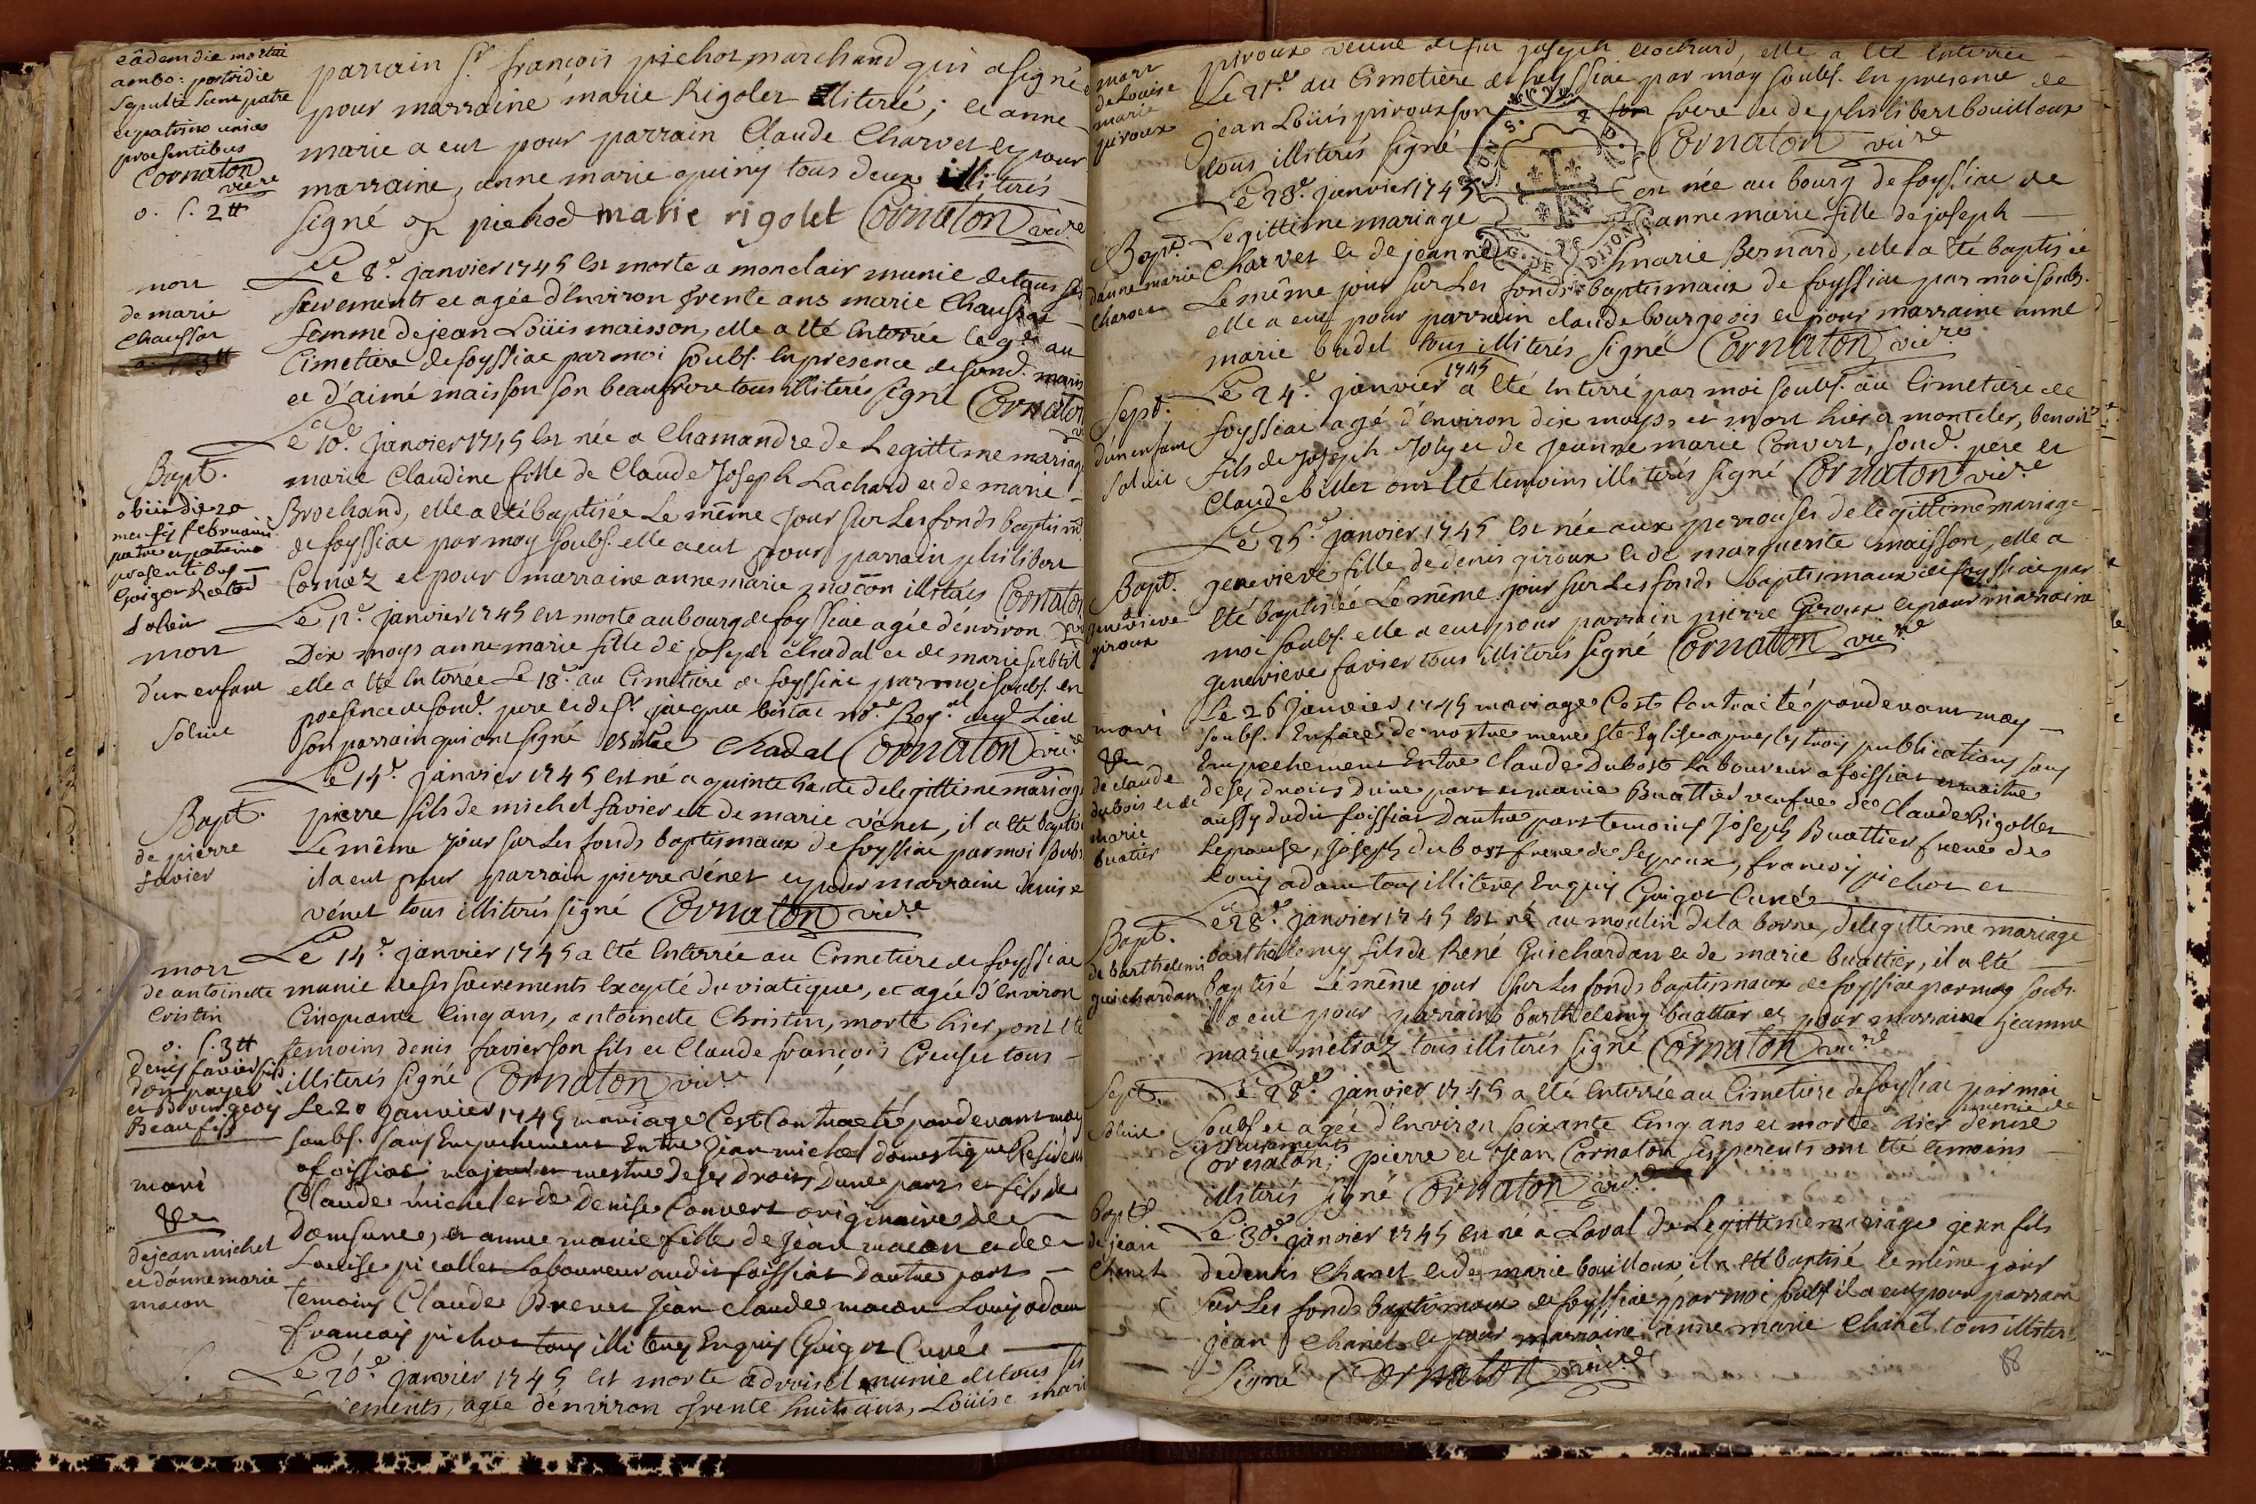 eâdem die mortui
ambo: postridie
sepulti sunt patre
et patrino unius
praesentibus
Cornaton
vicre
o. s. 2tt
parrain sr. françois pichot marchand qui a signé
pour marraine marie Rigolet illiterée; et anne
marie a eut pour parrain Claude Charvet et pour
marraine, anne marie quiny tous deux illiterés
signé pichod marie rigolet Cornaton vicre
mort
de marie
chausson
Le 8e. janvier 1745 est morte a monclair munie de tous ses
sacrements et agée d'environ trente ans marie Chausson
femme de jean Loüis maisson, elle a été enterrée le 9e au
Cimetiere de foyssiac par moi soubs. en presence de sond. maris
et d'aimé maisson son beaufrere tous illiterés signé Cornaton
Bapt.
obiit die 20
mensis februarii
patre et patrino
presentibus
Guigot Rector
solvit
Le 10e. janvier 1745 est née a Chamandre de Legittime mariage
marie Claudine fille de Claude Joseph Lachard et de marie
Brochand, elle a été baptisée Le même jour sur Les fonds baptism.
de foyssiac par moy soubs. elle a eut pour parrain philibert
Cornaz et pour marraine anne marie maçon illiterés Cornaton
mort
d'un enfant
solvit
Le 12e. janvier 1745 est morte au bourg de foyssiac agée d'environ
Dix moys anne marie fille de joseph chadal et de marie
elle a été enterrée Le 13e. au Cimetiere de foyssiac par moi soubs. en
presence de sond. pere et de Sr. jacque
son parrain qui ont signé chadal Cornaton vicre
Bapt.
de pierre
favier
Le 14e. janvier 1745 est né a quinte haute de legittime mariage
pierre fils de michel favier et de marie vénet, il a été baptisé
Le même jour sur Les fonds baptismaux de foyssiac par moi soubs
il a eut pour parrain pierre vénet et pour marraine denise
vénet tous illiterés signé Cornaton vicre
mort
de antoinette
Cristin
o. s. 3tt
denis favier fils
doit payer
et Bourgeois
Beau fils
Le 14e. janvier 1745 a été enterrée au Cimetiere de foyssiac
munie de ses sacrements excepté du viatique, et agée d'environ
Cinquante Cinq ans, antoinette Christin, morte hier, ont été
temoins denis favier son fils et Claude françois Creuset tous
illiterés signé Cornaton vicre
mari
age
de jean michel
et d'anne marie
macon
Le 20 janvier 1745 mariage s'est Contracté pardevant moy
soubs. sans Empechement Entre Jean michel domestique Resident
a foissiac majeur et maitre de ses droits d'une part et fils de
Claude michel et de Denise Convert originaire de
domsure, et anne marie fille de Jean macon et de
Louise picollet Laboureur audit foissiat d'autre part
temoins Claude Brevet Jean claude macon Louis adam
francois pichot tous illiterés Enquis Guigot Curé
Le 20e. janvier 1745 est morte a droisel munie de tous ses
sacrements, agée d'environ trente huit ans, Loüise marie
mort
de Louise
marie
piroux
piroux veuve de feu joseph brochard, elle a été enterrée
Le 21e. au Cimetière de foyssiac par moy soubs. en presence de
jean Loüis piroux son frere et de philibert bouilloux
tous illiterés signé Cornaton vicre
Bapt.
d'anne marie
Charvet
Le 23e. janvier 1745 est née au bourg de foyssiac de
Legittime mariage jeanne marie fille de joseph
Charvet et de jeanne marie Bernard, elle a été baptisée
Le même jour sur Les fonds baptismaux de foyssiac par moi soubs.
elle a eut pour parrain claude bourgeois et pour marraine anne
marie budel tous illiterés signé Cornaton vicre
Sept.
d'un enfant
solvit
1745
Le 24e. janvier a été enterré par moi soubs. au Cimetiere de
foyssiac agé d'environ dix moys et mort hier a monteler, benoit
fils de Joseph Joly et de jeanne marie Convert, sond. pere et
Claude billet ont été temoins illiterés signé Cornaton vicre
Bapt.
de
genevieve
giroux
Le 25e. janvier 1745 est née aux perrouses de legittime mariage
genevieve fille de denis giroux et de marguerite maisson, elle a
été baptisée Le même jour sur Les fonds baptismaux de foyssiac par
moi soubs. elle a eut pour parrain pierre Giroux et pour marraine
genevieve favier tous illiterés signé Cornaton vicre
mari
age
de claude
dubois et de
marie
buatier
Le 26 janvier 1745 mariage s'est Contracté pardevant moy
soubs. En face de nostre mere Ste Eglise apres les trois publications sans
Empechement Entre Claude Dubost Laboureur a foissiat et maitre
de ses droits d'une part et marie Buattier veufve de Claude Rigollet
aussy dudit foissiat d'autre part temoins Joseph Buattier frere de
Lepouse, Joseph dubost frere de Lepoux, francois pichot et
Louis adam tous illiterés Enquis Guigot Curé
Bapt.
de barthelemi
guichardan
Le 28e. janvier 1745 est né au moulin de la borne, de legittime mariage
barthelemy fils de René Guichardan et de marie buattier, il a été
baptisé Le même jour sur Les fonds baptismaux de foyssiac par moy soubs.
Il a eut pour parrain barthelemy buattier et pour marraine jeanne
marie métraz tous illiterés signé Cornaton vicre
Sept.
solvit
Le 28e. janvier 1745 a été enterrée au Cimetiere de foyssiac par moi
soubs et agée d'environ soixante Cinq ans et morte hier munie de
sacrements denise
Cornaton; pierre et Jean Cornaton ses parents ont été temoins
illiterés signé Cornaton vicre
bapt.
de jean
Chanel
Le 30e. janvier 1745 est né a Laval de Legittime mariage jean fils
de denis Chanel et de marie bouilloux, il a été baptisé le même jour
sur Les fonds baptismaux de foyssiac par moi soubs il a eut pour parrain
jean Chanel et pour marraine anne marie Chanel tous illiterés
Signé Cornaton vicre